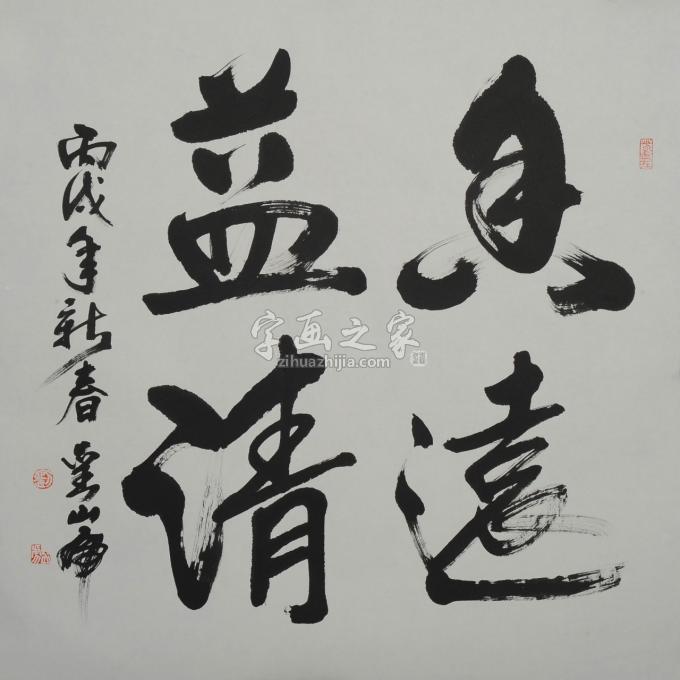 香遠
益清
丙戌年新春
字画之家
zihuazhijia.com